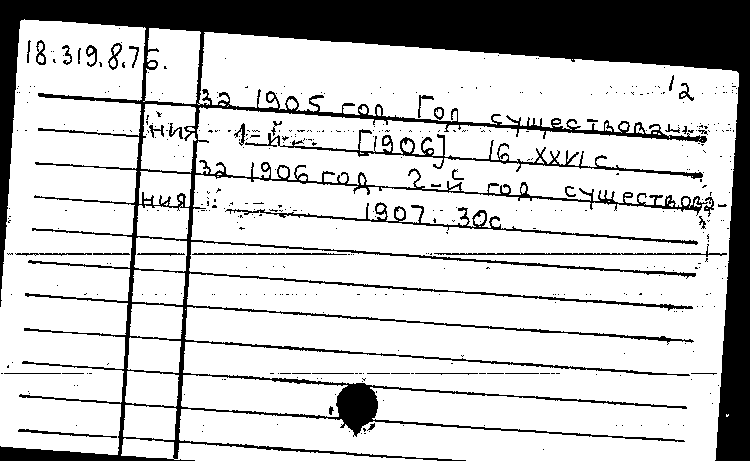 18.319.8.76.
12
За 1905 год. Год существова-
ния 1-й [1906]. 16, XXVI с.
За 1906 год. 2-й год существова-
ния 1907. 30с.